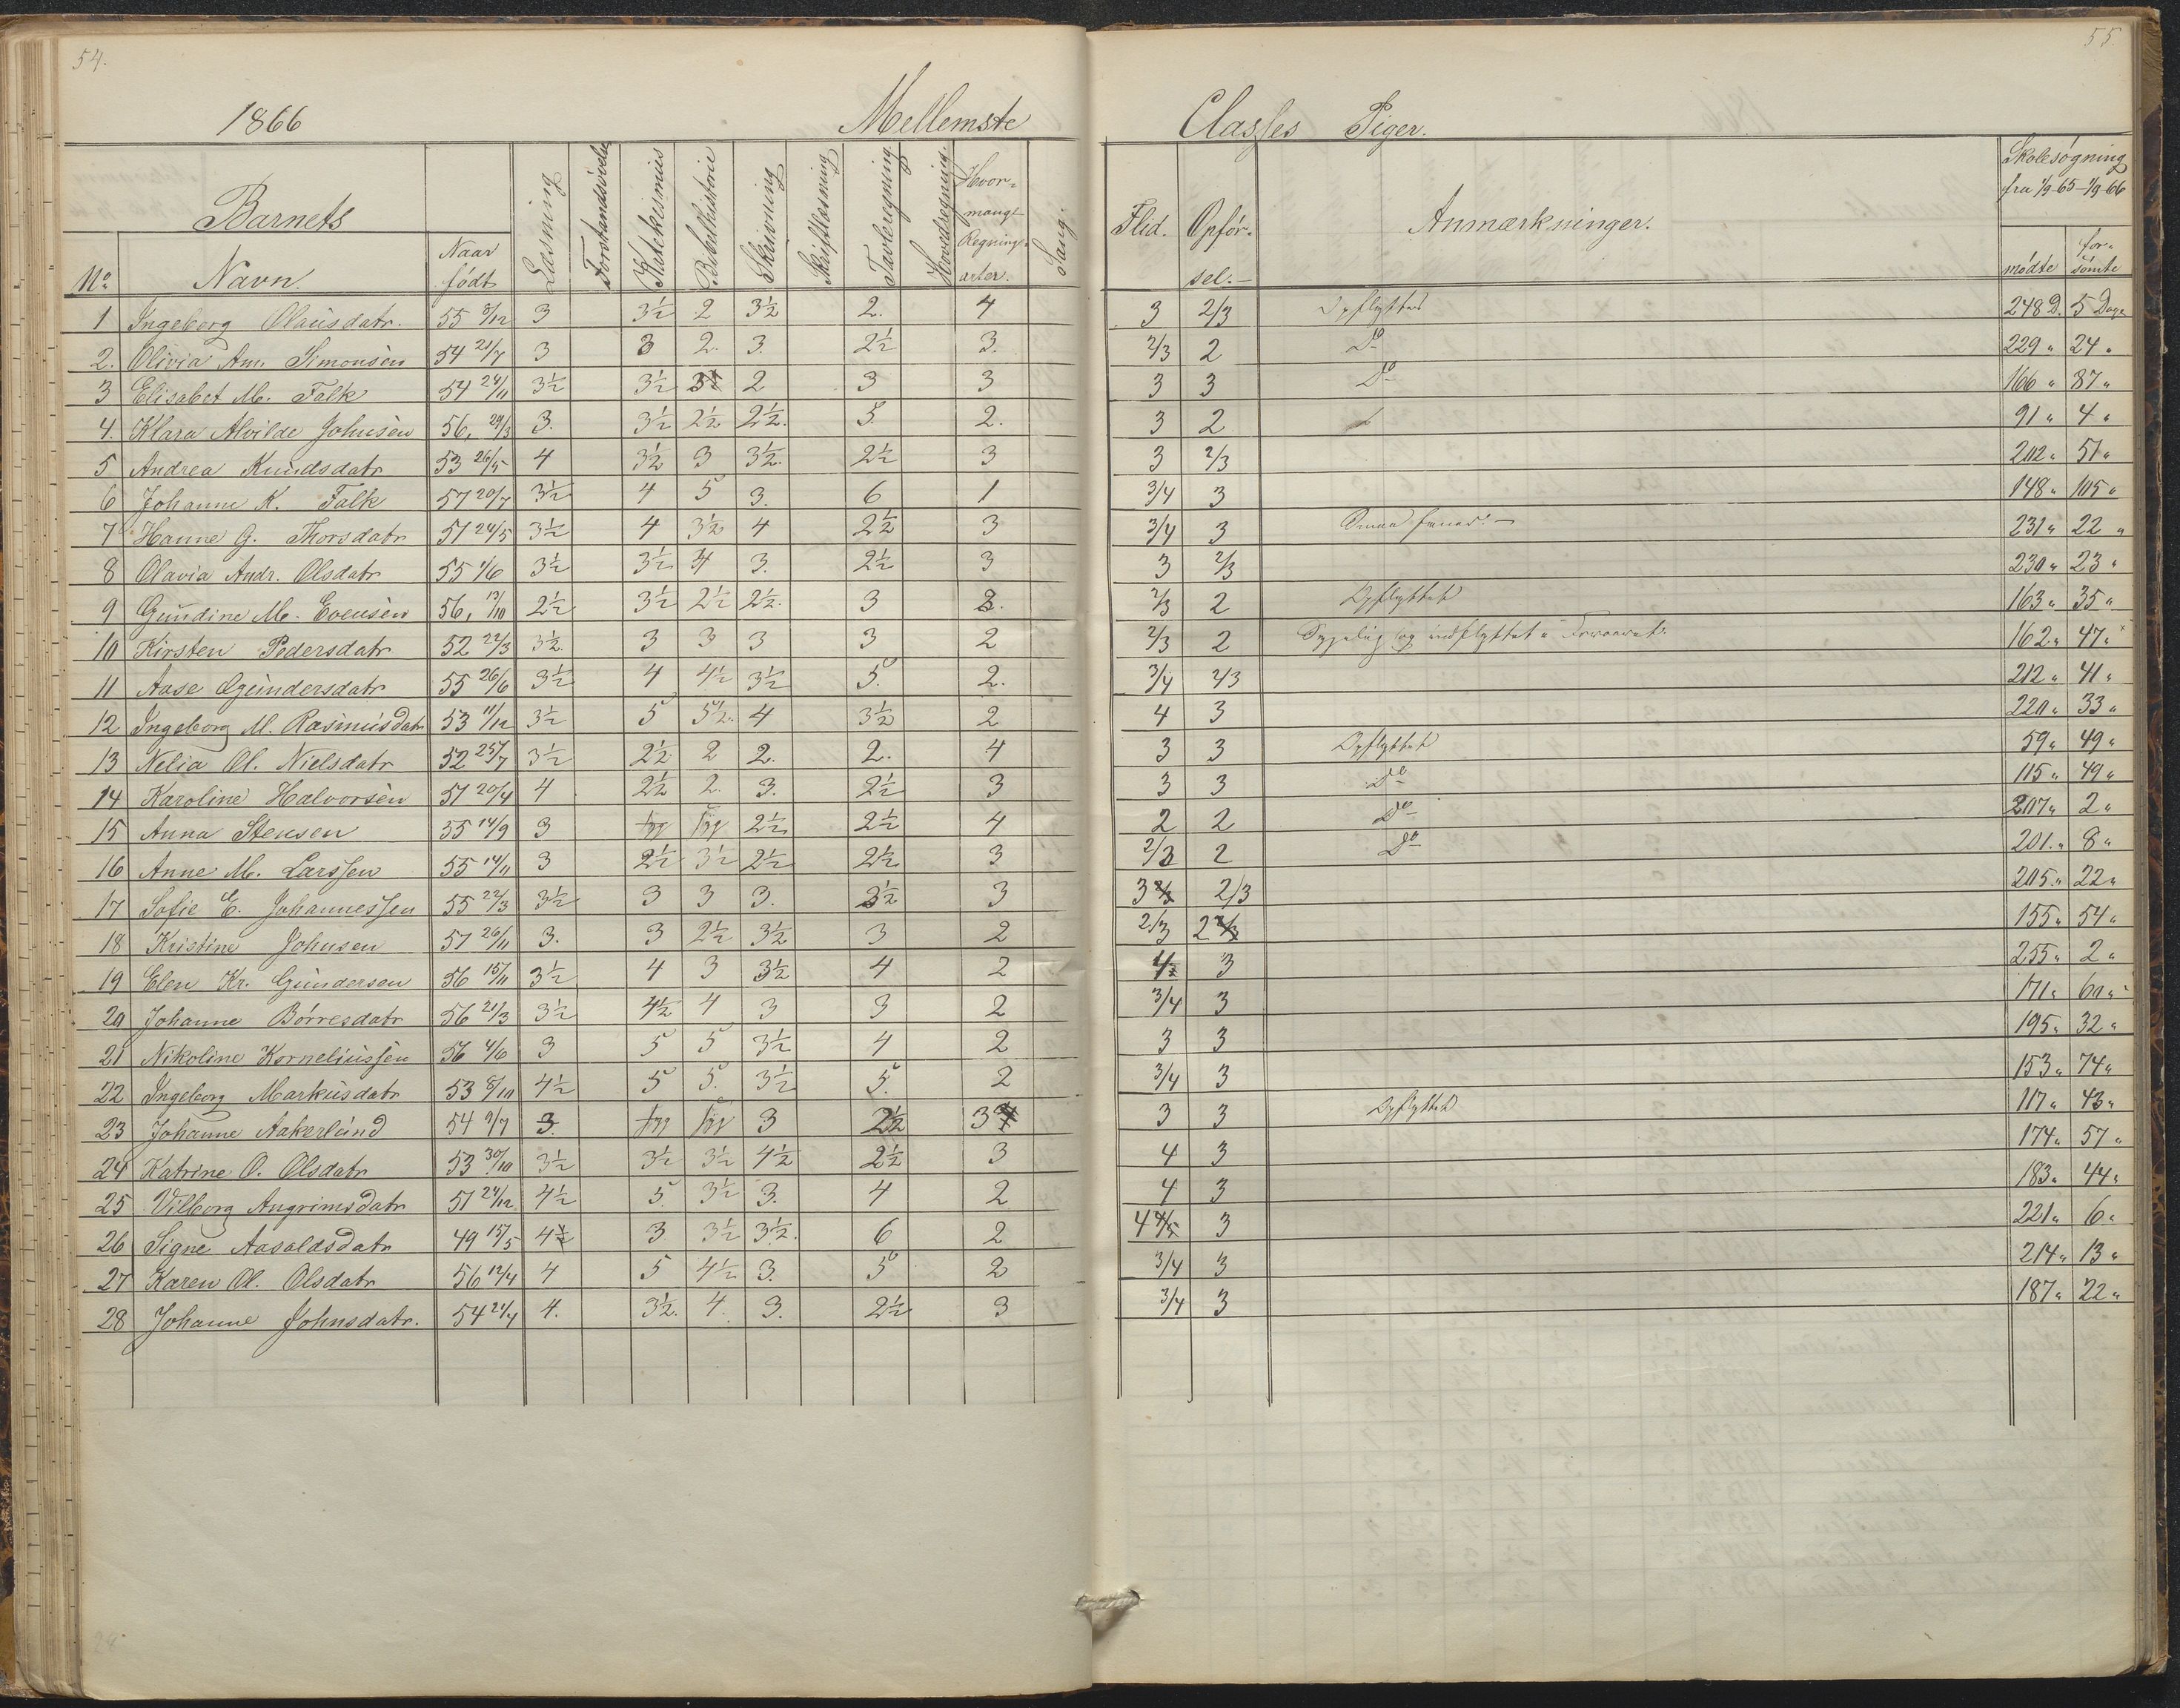 54.
55.
1866 Mellemste Classes Piger.
Barnets
No Navn. Naar født Læsning Forstandsøvelse Katekismus Bibelhistorie Skrivning Skriftlæsning Tavleregning Hovedregning. Hvor- mange Regnings- arter. Sang. Flid. Opførsel.- Anmærkninger. Skolesøgning fra 1/9 65 - 1/9 66 mødte forsømte
1 Ingeborg Olausdatr. 55 8/12 3 3½ 2 3½ 2. 4 3 2/3 Opflyttet 248 D. 5 Dage
2. Olivia Am. Simonsen 54 21/7 3 3 2. 3. 2½ 3. 2/3 2 Do 229 " 24 "
3 Elisabet M. Falk 54 24/11 3½ 3½ 2 3 3 3 3 Do 166 " 87 "
4. Klara Alvilde Johnsen 56, 29/3 3. 3½ 2½ 2½. 5. 2. 3 2 91 " 4 "
5 Andrea Knudsdatr 53 26/5 4 3½ 3 3½. 2½ 3 3 2/3 202 " 51 "
6 Johanne K. Falk 57 20/7 3½ 4 5 3. 6 1 3/4 3 148 " 105 "
7 Hanne G. Thorsdatr 51 24/5 3½ 4 3½ 4 2½ 3 3/4 3 231 " 22 "
8 Olavia Andr. Olsdatr 55 1/6 3½ 3½ 4 3. 2½ 3 3 2/3 230 " 23 "
9 Gundine M. Evensen 56, 13/10 2½ 3½ 2½ 2½. 3 3. 2/3 2 Opflyttet 163 " 35 "
10 Kirsten Pedersdatr 52 22/3 3½. 3 3 3 3 2 2/3 2 Sygelig og indflyttet 162 " 47 "
11 Aase Gundersdatr 55 26/6 3½ 4 4½ 3½ 5. 2. 3/4 2/3 212 " 41 "
12 Ingeborg M. Rasmusdatr 53 11/12 3½ 5 5½. 4 3½ 2 4 3 220 " 33 "
13 Nelia Ol. Nielsdatr 52 25/7 3½ 2½ 2 2. 2. 4 3 3 Opflyttet 59 " 49 "
14 Karoline Halvorsen 51 20/4 4 2½ 2. 3. 2½ 3 3 3 Do 115 " 49 "
15 Anna Stensen 55 14/9 3 2½ 2½ 4 2 2 Do 207 " 2 "
16 Anne M. Larssen 55 14/11 3 2½ 3½ 2½ 2½ 3 2/3 2 Do 201. " 8 "
17 Sofie E. Johannessen 55 22/3 3½ 3 3 3. 2½ 3 3 2/3 205 " 22 "
18 Kristine Johnsen 57 26/11 3. 3 2½ 3½ 3 2 2/3 2 155 " 54 "
19 Elen Kr. Gundersen 56 15/11 3½ 4 3 3½ 4 2 3 255 " 2 "
20 Johanne Børresdatr 56 21/3 3½ 4½ 4 3 3 2 3/4 3 171 " 60 "
21 Nikoline Korneliussen 56 4/6 3 5 5 3½ 4 2 3 3 195 " 32 "
22 Ingeborg Markusdatr 53 8/10 4½ 5 5. 3½ 5. 2 3/4 3 153 " 74 "
23 Johanne Aakerlund 54 9/7 3. 3 2½ 3 3 3 Opflyttet 117 " 43 "
24 Katrine O. Olsdatr 53 30/10 3½ 3½ 3½ 4½ 2½ 3 4 3 174 " 57 "
25 Vilborg Angrimsdatr 51 24/12 4½ 5. 3½ 3. 4 2 4 3 183 " 44 "
26 Signe Aasaldsdatr 49 15/5 4 3 3½ 3½. 6 2 4 3 221 " 6 "
27 Karen Ol. Olsdatr 56 12/4 4 5 4½ 3. 5 2 3/4 3 214 " 13 "
28 Johanne Johnsdatr. 54 21/4 4. 3½. 4. 3. 2½ 3 3/4 3 187 " 22 "
28